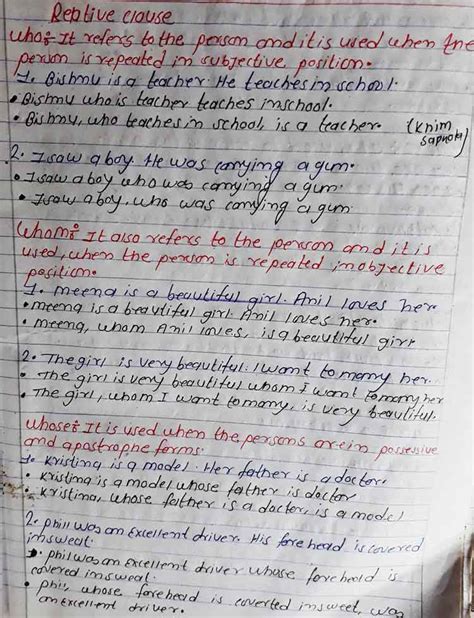 Reptive clause
who:- It refers to the person and it is used when the
person is repeated in subjective position.
1. Bishnu is a teacher. He teaches in school.
• Bishnu who is teacher teaches in school.
• Bishnu, who teaches in school, is a teacher. (Khim
sapkota)
2. I saw a boy. He was carrying a gum.
• I saw a boy who was carrying a gum.
• I saw a boy, who was carrying a gum
Whom:- It also refers to the person and it is
used, when the person is repeated in objective
position.
1. meena is a beautiful girl. Anil loves her.
• meena is a beautiful girl. Anil loves her.
• meena, whom Anil loves, is a beautiful girl
2. The girl is very beautiful. I want to marry her.
• The girl is very beautiful whom I want to marry her
• The girl, whom I want to marry, is very beautiful.
whose:- It is used when the persons are in possessive
and apostrophe forms.
1. Kristina is a model. Her father is a doctor.
• Kristina is a model whose father is doctor
• Kristina, whose father is a doctor, is a model
2. phill was an excellent driver. His fore head is covered
in sweat.
• phil was an excellent driver whose fore head is
covered in sweat.
• phil, whose forehead is coverted in sweet, was
an excellent driver.